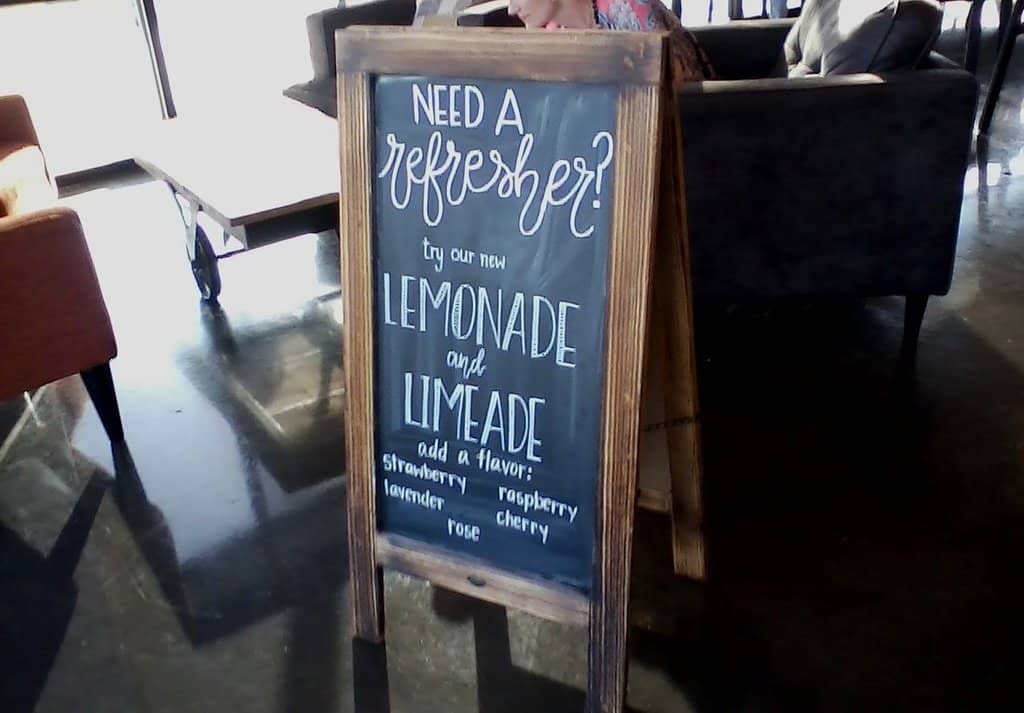 NEED A
refresher?
try our new
LEMONADE
and
LIMEADE
add a flavor:
strawberry raspberry
lavender cherry
rose